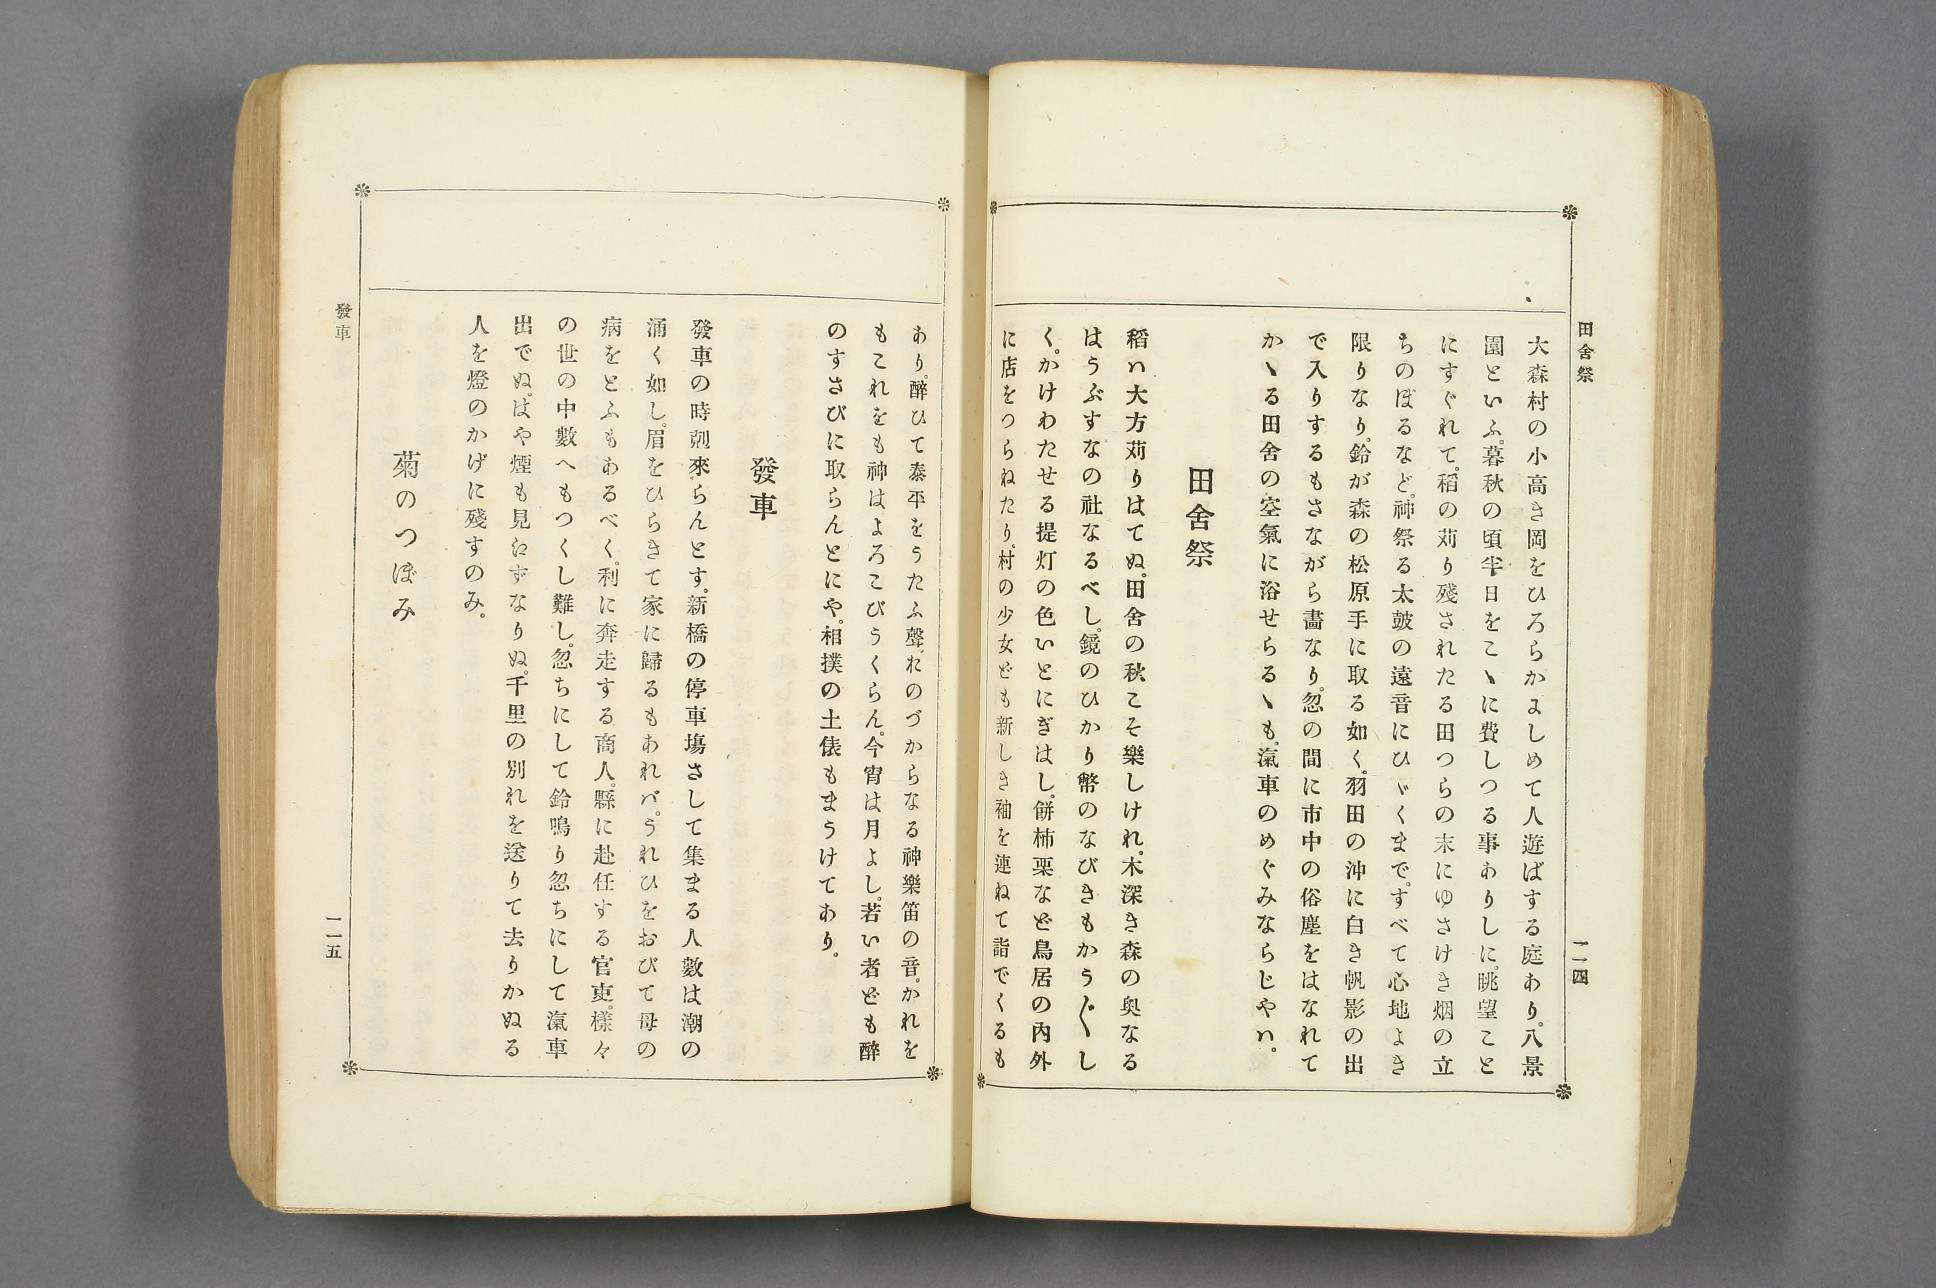 田舍祭
二一四
大森村の小高き岡をひろらかましめて人遊ばする庭あり。八景
園といふ。暮秋の頃半日をこゝに費しつる事ありしに。眺望こと
にすぐれて。稻の苅り殘されたる田つらの末にゆさけき烟の立
ちのぼるなど。神祭る太皷の遠音にひゞくまで。すべて心地よき
限りなり。鈴が森の松原手に取る如く。羽田の沖に白き帆影の出
で入りするもさながら畵なり。忽の間に市中の俗塵をはなれて
かゝる田舍の空氣に浴せらるゝも。滊車のめぐみならじやハ。
田舍祭
稻ハ大方苅りはてぬ。田舍の秋こそ樂しけれ。木深き森の奥なる
はうぶすなの社なるべし。鏡のひかり幣のなびきもかう〴〵し
く。かけわたせる提灯の色いとにぎはし。餠柿栗など鳥居の内外
に店をつらねたり。村の少女ども新しき袖を連ねて詣でくるも
あり。醉ひて泰平をうたふ聲おのづからなる神樂笛の音。かれを
もこれをも神はよろこびうくらん。今宵は月よし。若い者ども醉
のすさびに取らんとにや。相撲の土俵もまうけてあり。
發車
發車の時刻來らんとす。新橋の停車塲さして集まる人數は潮の
涌く如し。眉をひらきて家に歸るもあれバ。うれひをおびて母の
病をとふもあるべく。利に奔走する商人。縣に赴任する官吏。樣々
の世の中數へもつくし難し。忽ちにして鈴鳴り忽ちにして滊車
出でぬ。はや煙も見えずなりぬ。千里の別れを送りて去りかぬる
人を燈のかげに殘すのみ。
菊のつぼみ
發車
二一五